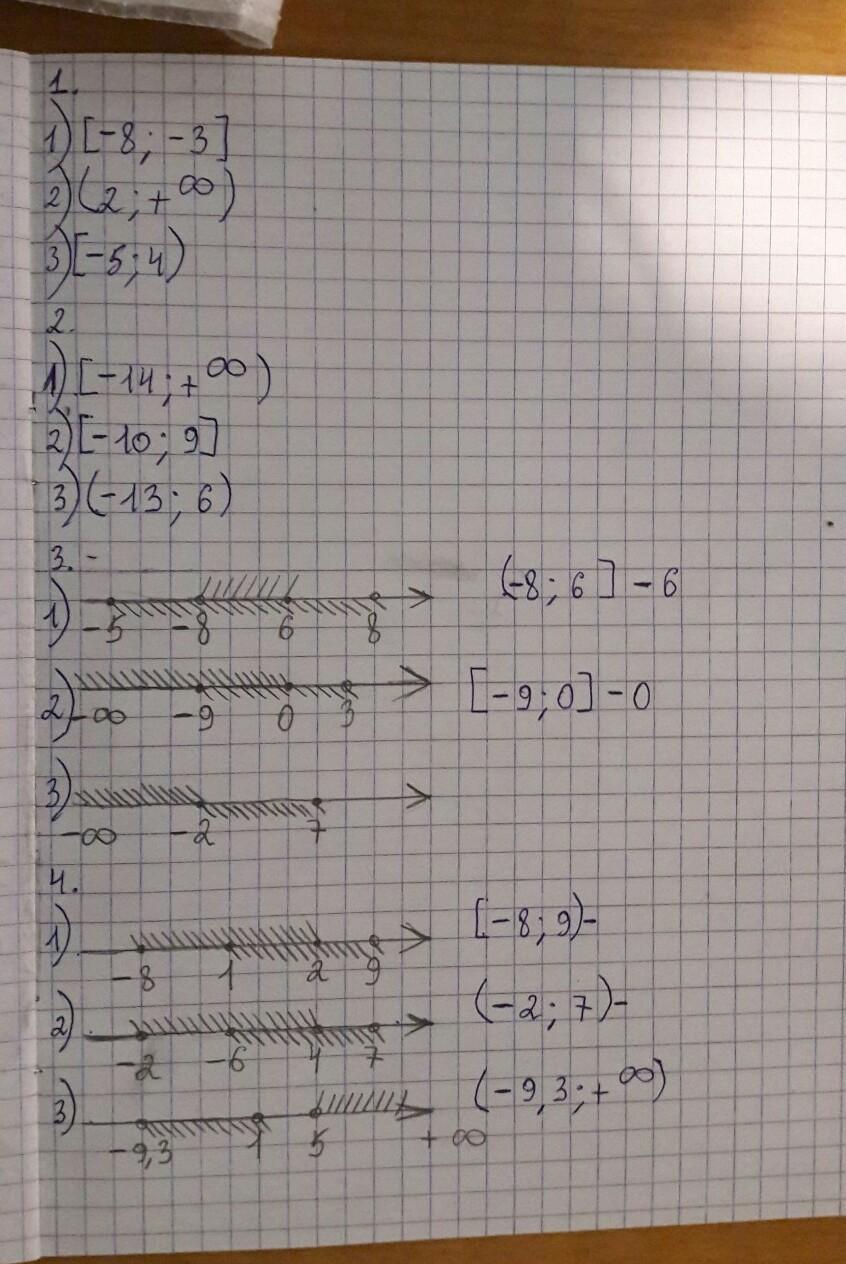 1.
1) [-8; -3]
2) (2; +∞)
3) [-5; 4)
2.
1) [-14; +∞)
2) [-10; 9]
3) (-13; 6)
3. -
1) -5 -8 6 8 (-8; 6] - 6
2) -∞ -9 0 3 [-9; 0] - 0
3) -∞ -2 7
4.
1) -8 1 2 9 [-8; 9) -
2) -2 -6 4 7 (-2; 7) -
3) -9,3 1 5 +∞ (-9,3; +∞)